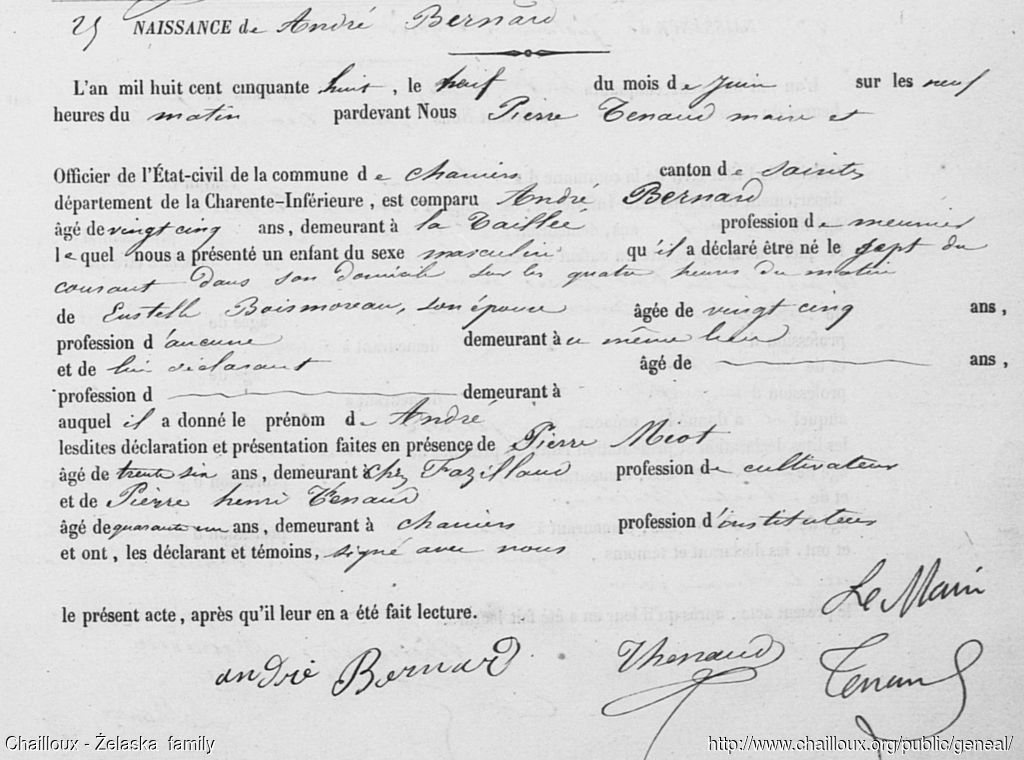 25 NAISSANCE de André Bernard
L'an mil huit cent cinquante huit, le neuf du mois de Juin sur les neuf
heures du matin pardevant Nous Pierre Tenaud maire et
Officier de l'État-civil de la commune de chaniers canton de saintes
département de la Charente-Inférieure, est comparu André Bernard
âgé de vingt cinq ans, demeurant à la Taillée profession de meunier
lequel nous a présenté un enfant du sexe masculin qu'il a déclaré être né le sept du
courant dans son domicile sur les quatre heures du matin
de Eustelle Boismoreau, son épouse âgée de vingt cinq ans,
profession d'aucune demeurant à au même lieu
et de lui déclarant âgé de ans,
profession d demeurant à
auquel il a donné le prénom de André
lesdites déclaration et présentation faites en présence de Pierre Meot
âgé de trente six ans, demeurant à chez Fazillaud profession de cultivateur
et de Pierre henri Tenaud
âgé de quarante un ans, demeurant à chaniers profession d'instituteur
et ont, les déclarant et témoins, signé avec nous
le présent acte, après qu'il leur en a été fait lecture.
Le Maire
andré Bernard Thenaud Tenaud
Chailloux - Żelaska family http://www.chailloux.org/public/geneal/